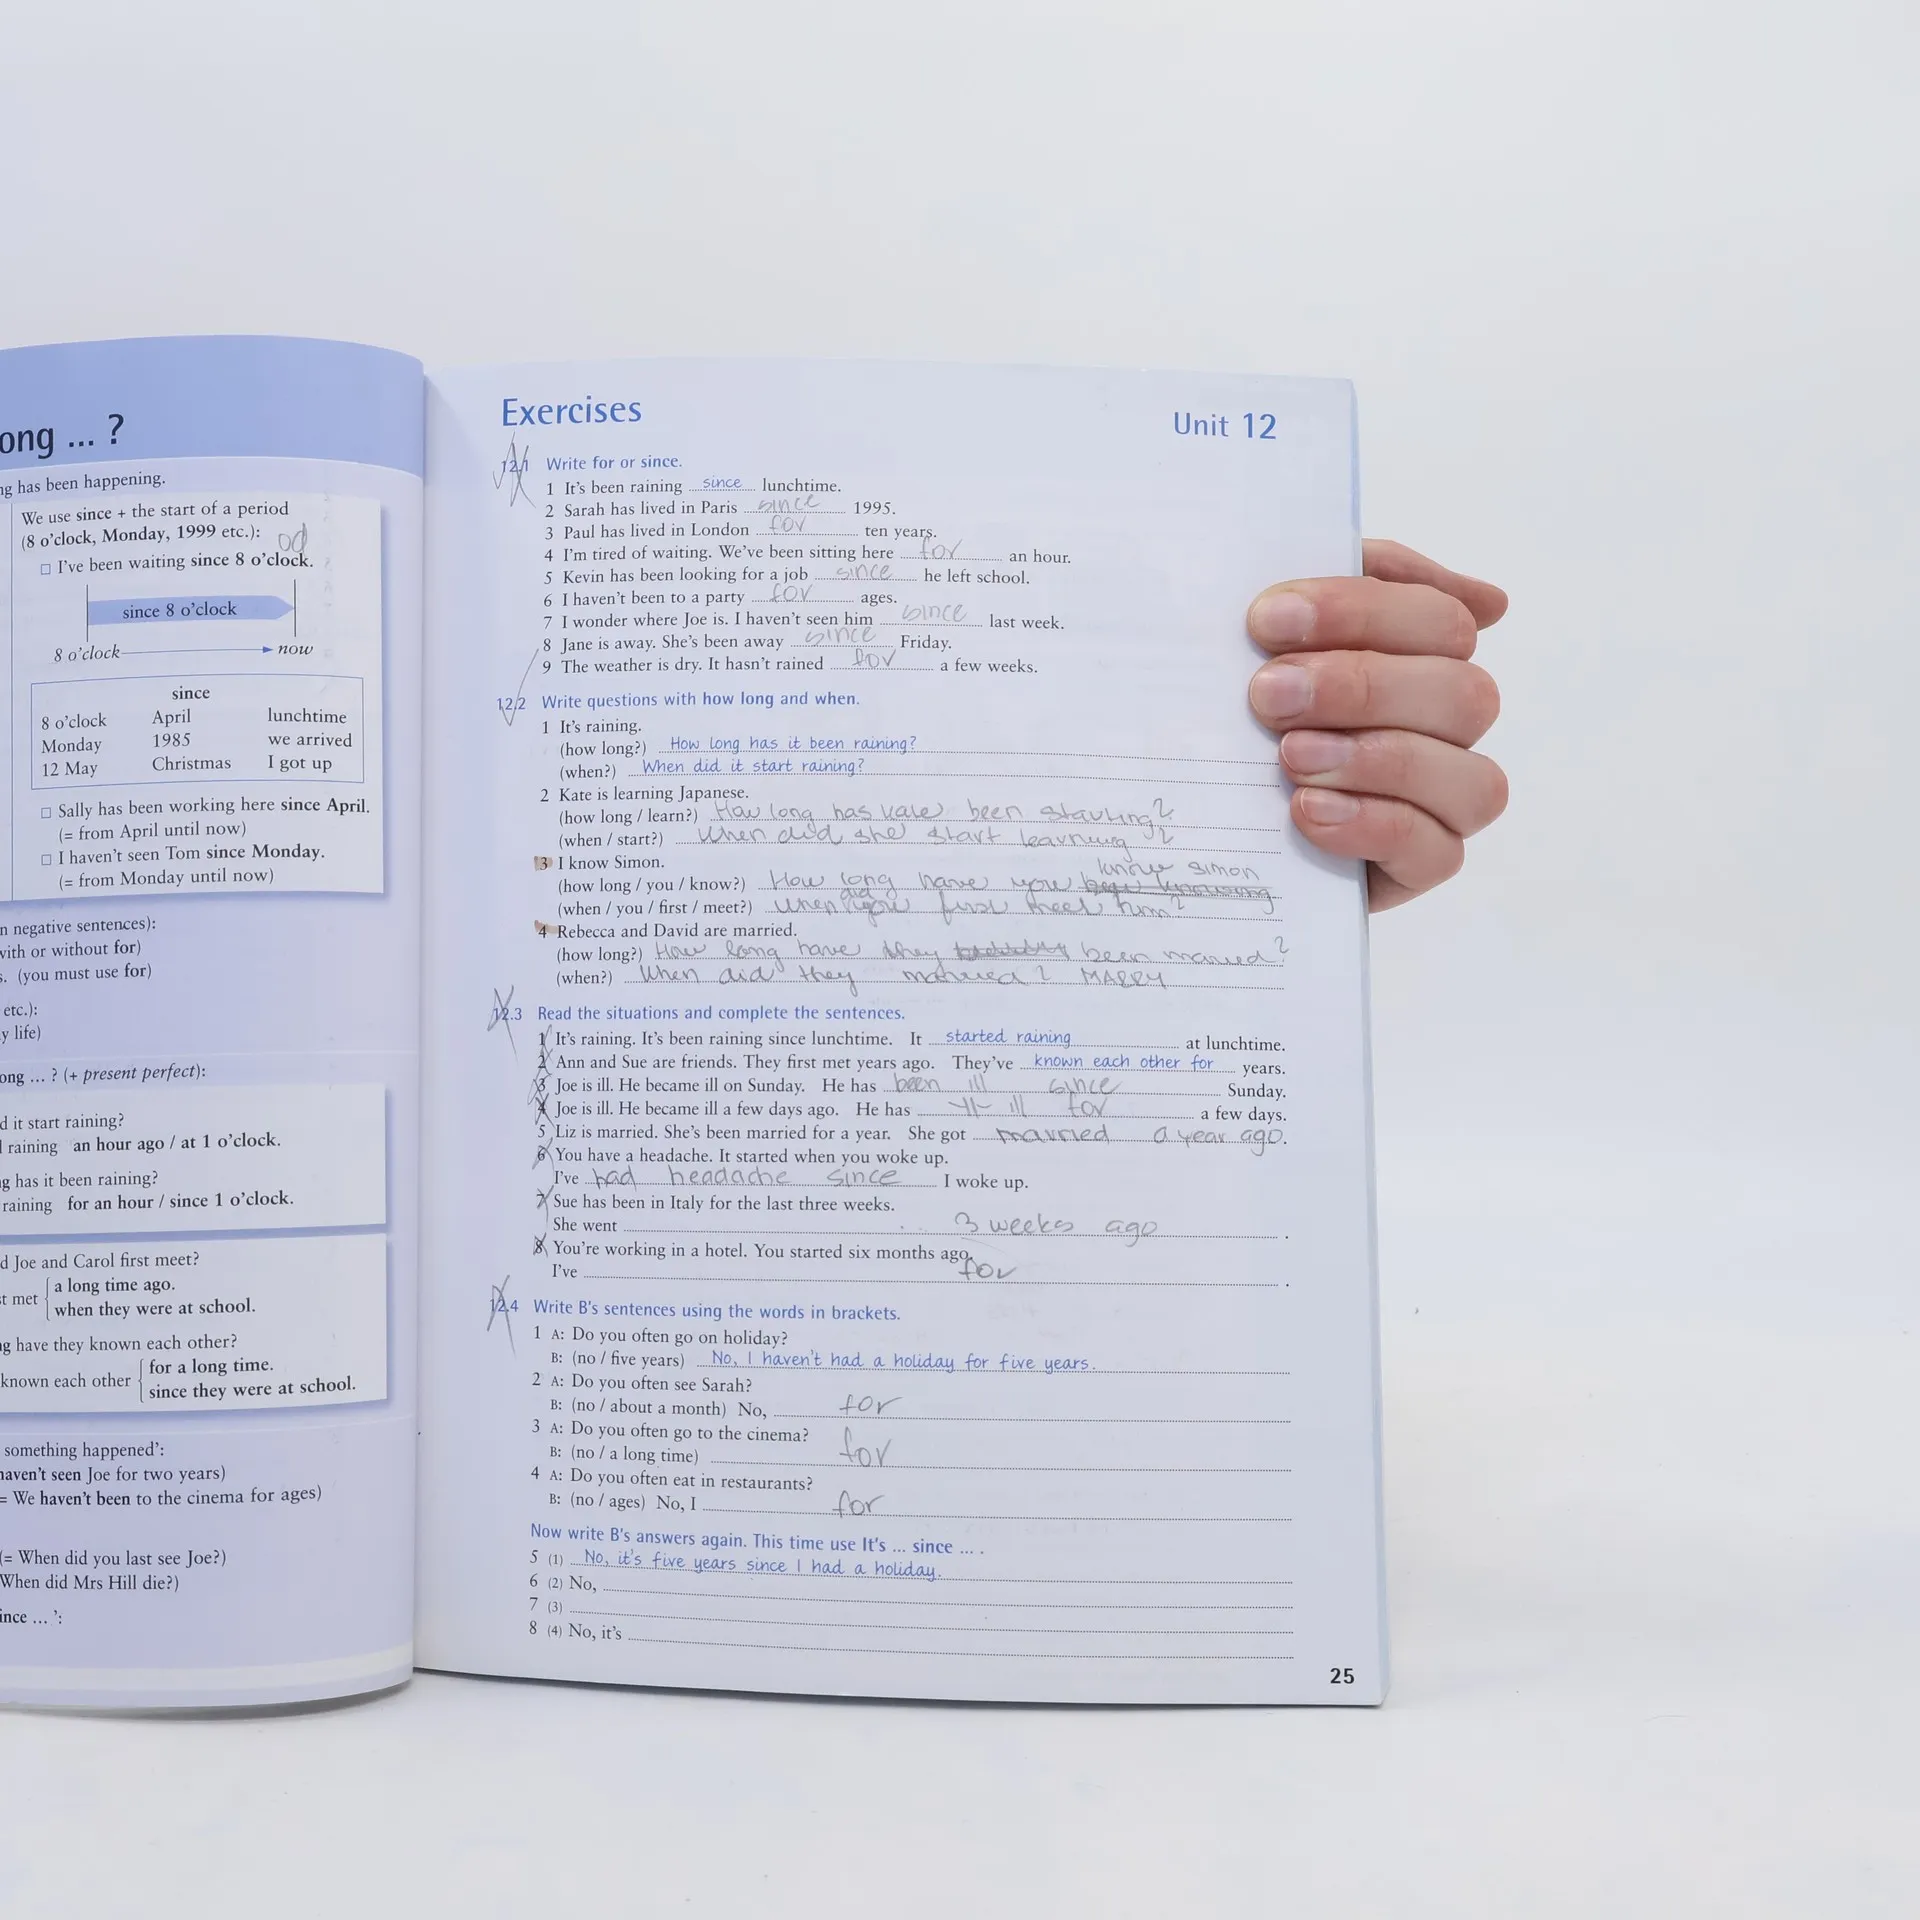 ong ... ?
ng has been happening.
We use since + the start of a period
(8 o'clock, Monday, 1999 etc.):
od
I've been waiting since 8 o'clock.
since 8 o'clock
8 o'clock
now
since
8 o'clock April lunchtime
Monday 1985 we arrived
12 May Christmas I got up
Sally has been working here since April.
(= from April until now)
I haven't seen Tom since Monday.
(= from Monday until now)
n negative sentences):
with or without for)
s. (you must use for)
etc.):
y life)
ong ... ? (+ present perfect):
d it start raining?
raining an hour ago / at 1 o'clock.
g has it been raining?
raining for an hour / since 1 o'clock.
d Joe and Carol first meet?
st met a long time ago.
when they were at school.
g have they known each other?
known each other for a long time.
since they were at school.
something happened':
haven't seen Joe for two years)
= We haven't been to the cinema for ages)
(= When did you last see Joe?)
When did Mrs Hill die?)
ince ... ':
Exercises
Unit 12
12.1 Write for or since.
1 It's been raining since lunchtime.
2 Sarah has lived in Paris since 1995.
3 Paul has lived in London for ten years.
4 I'm tired of waiting. We've been sitting here for an hour.
5 Kevin has been looking for a job since he left school.
6 I haven't been to a party for ages.
7 I wonder where Joe is. I haven't seen him since last week.
8 Jane is away. She's been away since Friday.
9 The weather is dry. It hasn't rained for a few weeks.
12.2 Write questions with how long and when.
1 It's raining.
(how long?) How long has it been raining?
(when?) When did it start raining?
2 Kate is learning Japanese.
(how long / learn?) How long has Kate been ?
(when / start?) When did she start learning ?
3 I know Simon.
know simon
(how long / you / know?) How long have you
did
(when / you / first / meet?) when you first meet him?
4 Rebecca and David are married.
(how long?) How long have they been married?
(when?) When did they married? MARRY
12.3 Read the situations and complete the sentences.
1 It's raining. It's been raining since lunchtime. It started raining at lunchtime.
2 Ann and Sue are friends. They first met years ago. They've known each other for years.
3 Joe is ill. He became ill on Sunday. He has been ill since Sunday.
4 Joe is ill. He became ill a few days ago. He has -||- ill for a few days.
5 Liz is married. She's been married for a year. She got married a year ago.
6 You have a headache. It started when you woke up.
I've had headache since I woke up.
7 Sue has been in Italy for the last three weeks.
She went 3 weeks ago .
8 You're working in a hotel. You started six months ago.
I've for .
12.4 Write B's sentences using the words in brackets.
1 A: Do you often go on holiday?
B: (no / five years) No, I haven't had a holiday for five years.
2 A: Do you often see Sarah?
B: (no / about a month) No, for
3 A: Do you often go to the cinema?
B: (no / a long time) for
4 A: Do you often eat in restaurants?
B: (no / ages) No, I for
Now write B's answers again. This time use It's ... since ... .
5 (1) No, it's five years since I had a holiday.
6 (2) No,
7 (3)
8 (4) No, it's
25